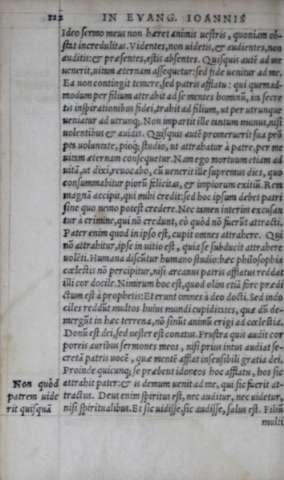 122 IN EVANG. IOANNIS
Ideo sermo meus non hæret animis uestris, quoniam ob-
stat incredulitas. Videntes, non uidetis, & audientes, non
auditis: & præsentes, estis absentes. Quisquis autẽ ad me
uenerit, uitam æternam assequetur: sed fide uenitur ad me.
Ea non contingit temere, sed patris afflatu: qui quemad-
modum per filium attrahit ad se mentes hominũ, ita secre
tis inspirationibus fidei, trahit ad filium, ut per utrunque
ueniatur ad utrunq;. Non impartit ille tantum munus, nisi
uolentibus & auidis. Quisquis autẽ promeruerit sua prõ
pta uoluntate, pioq; studio, ut attrahatur à patre, per me
uitam æternam consequetur. Nam ego mortuum etiam ad
uitã, ut dixi, reuocabo, cũ uenerit ille supremus dies, quo
consummabitur piorũ felicitas, & impiorum exitiũ. Rem
magnã accipit, qui mihi credit: sed hoc ipsum debet patri
sine quo nemo potest credere. Nec tamen interim excusan
tur à crimine, qui nõ credunt, eò quòd nõ fuerũt attracti.
Pater enim quod in ipso est, cupit omnes attrahere. Qui
nõ attrahitur, ipse in uitio est, quia se subducit attrahere
uolẽti. Humana discũtur humano studio: hæc philosophia
cælestis nõ percipitur, nisi arcanus patris afflatus reddat
illi cor docile. Nimirum hoc est, quod olim etiã fore prædi
ctum est à prophetis: Et erunt omnes à deo docti. Sed indo
ciles reddũt multos huius mundi cupiditates, quæ dũ de-
mergũt in hæc terrena, nõ sinũt animũ erigi ad cælestia.
Donũ est dei, sed uester est conatus. Frustra quis audit cor
poreis auribus sermones meos, nisi prius intus audiat se-
cretã patris uocẽ, quæ mentẽ afflat insensibili gratia dei.
Proinde quicunq; se præbent idoneos hoc afflatu, hos sic
Non quòd attrahit pater: & is demum uenit ad me, qui sic fuerit at-
patrem uide tractus. Deus enim spiritus est, nec auditur, nec uidetur,
rit quisquã nisi spiritualibus. Et sic uidisse, sic audisse, salus est. Filiũ
multi